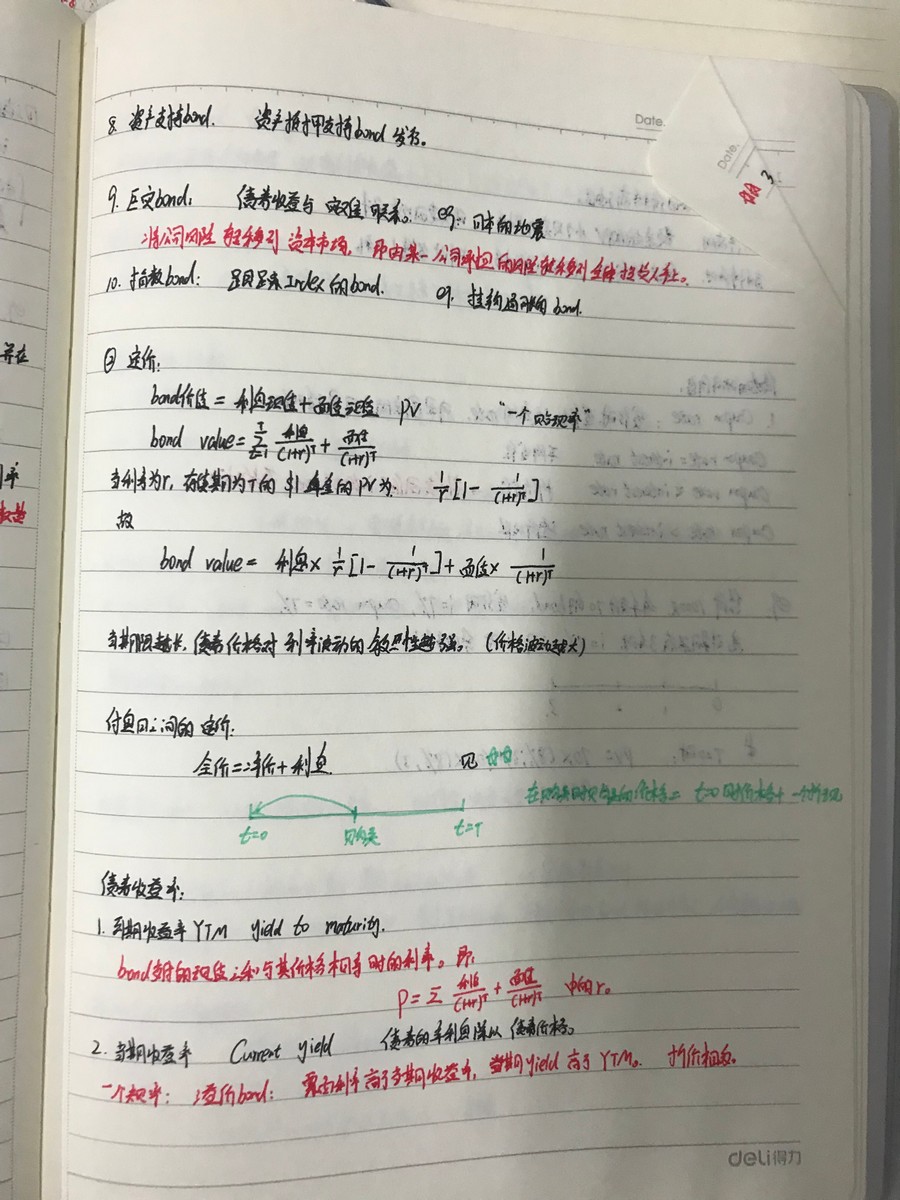 Date.
Date.
3
8. 资产支持bond. 资产抵押支持bond 发行。
9. 巨灾bond: 债券收益与 灾难 联系。 eg: 日本的地震
将公司风险 转移到 资本市场, 即由某一公司承担的风险转移到全体投资人手上。
10. 指数bond: 跟踪 Index 的bond. eg. 挂钩通胀的 bond.
② 定价:
bond价值 = 利息现值 + 面值现值 PV "一个贴现率"
bond value = Σ_{t=1}^{T} 利息/(1+r)^t + 面值/(1+r)^T
当利率为r, 存续期为T的 $1 年金的 PV 为: 1/r [1 - 1/(1+r)^T]
故
bond value = 利息 × 1/r [1 - 1/(1+r)^T] + 面值 × 1/(1+r)^T
当期限越长, 债券价格对 利率波动的 敏感性越强。 (价格波动越大)
付息日之间的定价:
全价 = 净价 + 利息 见
t=0 购买 t=T
在购买时 价格 = t=0 时价格 +
债券收益率:
1. 到期收益率 YTM yield to maturity.
bond支付的现值之和与其价格相等时的利率。即:
P = Σ 利息/(1+r)^T + 面值/(1+r)^T 中的r。
2. 当期收益率 Current yield 债券的年利息除以 债券价格。
一个规律: 溢价bond: 票面利率高于当期收益率, 当期yield 高于 YTM。 折价相反。
deli得力